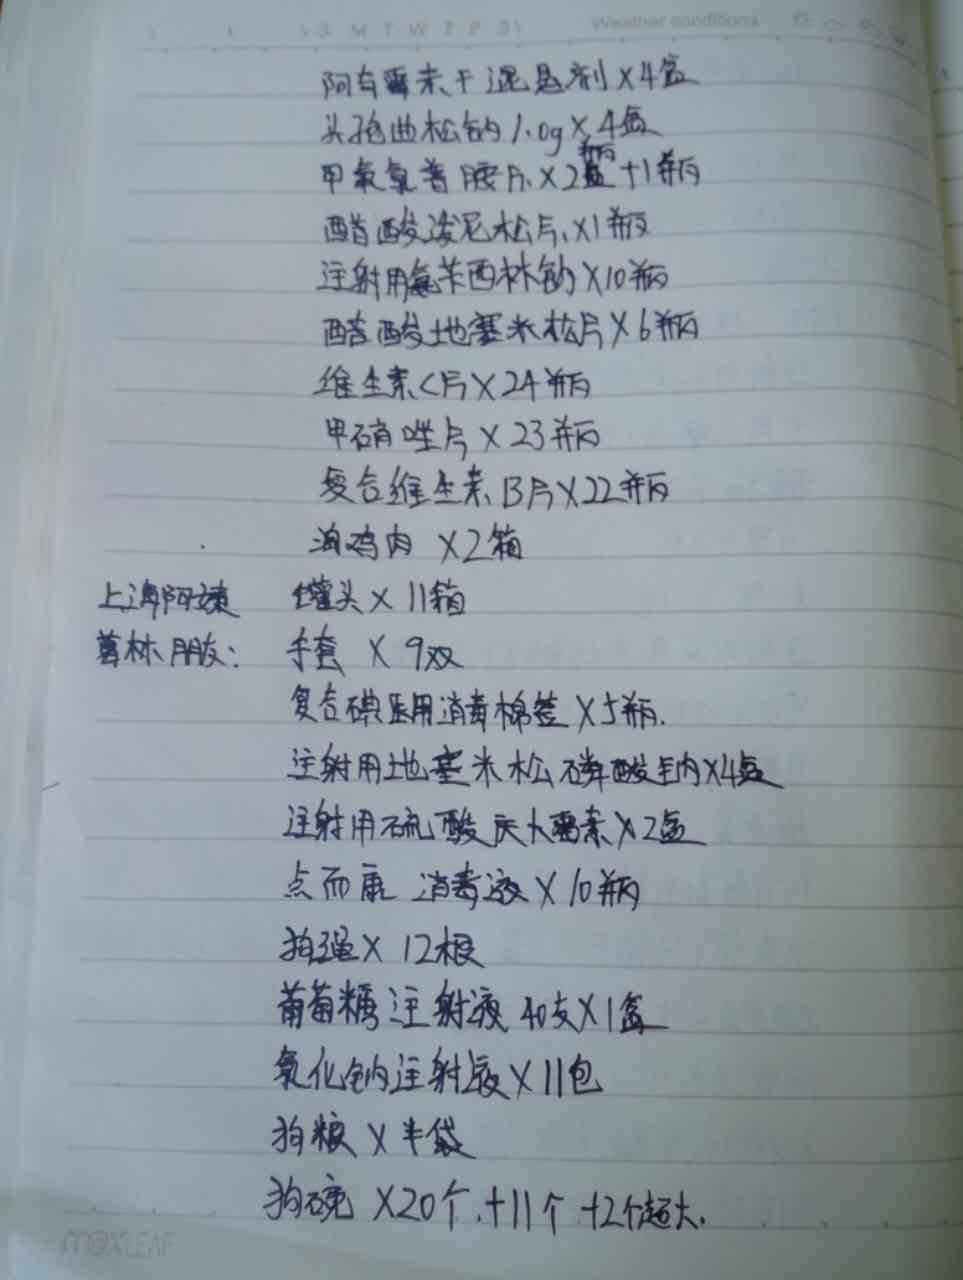 S M T W T F S Weather conditions
阿奇霉素干混悬剂×4盒
头孢曲松钠1.0g×4盒
甲氧氯普胺片×2瓶+1瓶
醋酸泼尼松片×1瓶
注射用氨苄西林钠×10瓶
醋酸地塞米松片×6瓶
维生素C片×24瓶
甲硝唑片×23瓶
复合维生素B片×22瓶
鸡肉×2箱
上海阿姨 罐头×11箱
朋友: 手套×9双
复合碘医用消毒棉签×5瓶.
注射用地塞米松磷酸钠×4盒
注射用硫酸庆大霉素×2盒
点而康 消毒液×10瓶
狗绳×12根
葡萄糖注射液 40支×1盒
氯化钠注射液×11包
狗粮×半袋
狗碗×20个+11个+2个超大.
MOXLEAF